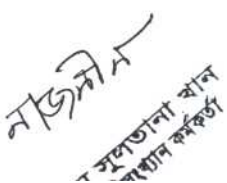 নাজনীন
সুলতানা খান
কর্মকর্তা